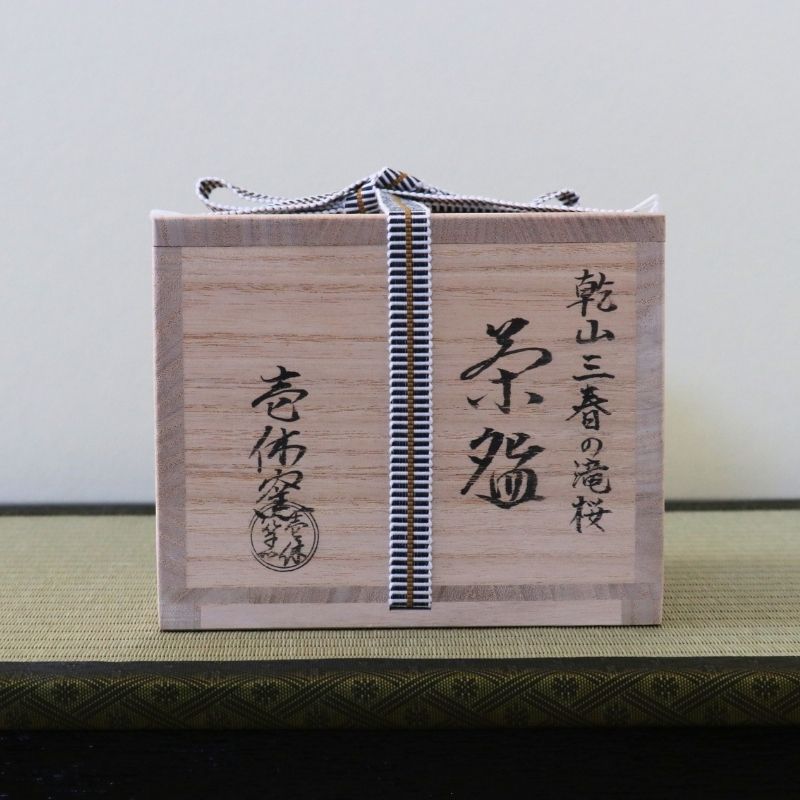 乾山三春の滝桜
茶盌
壱休窯
壱休